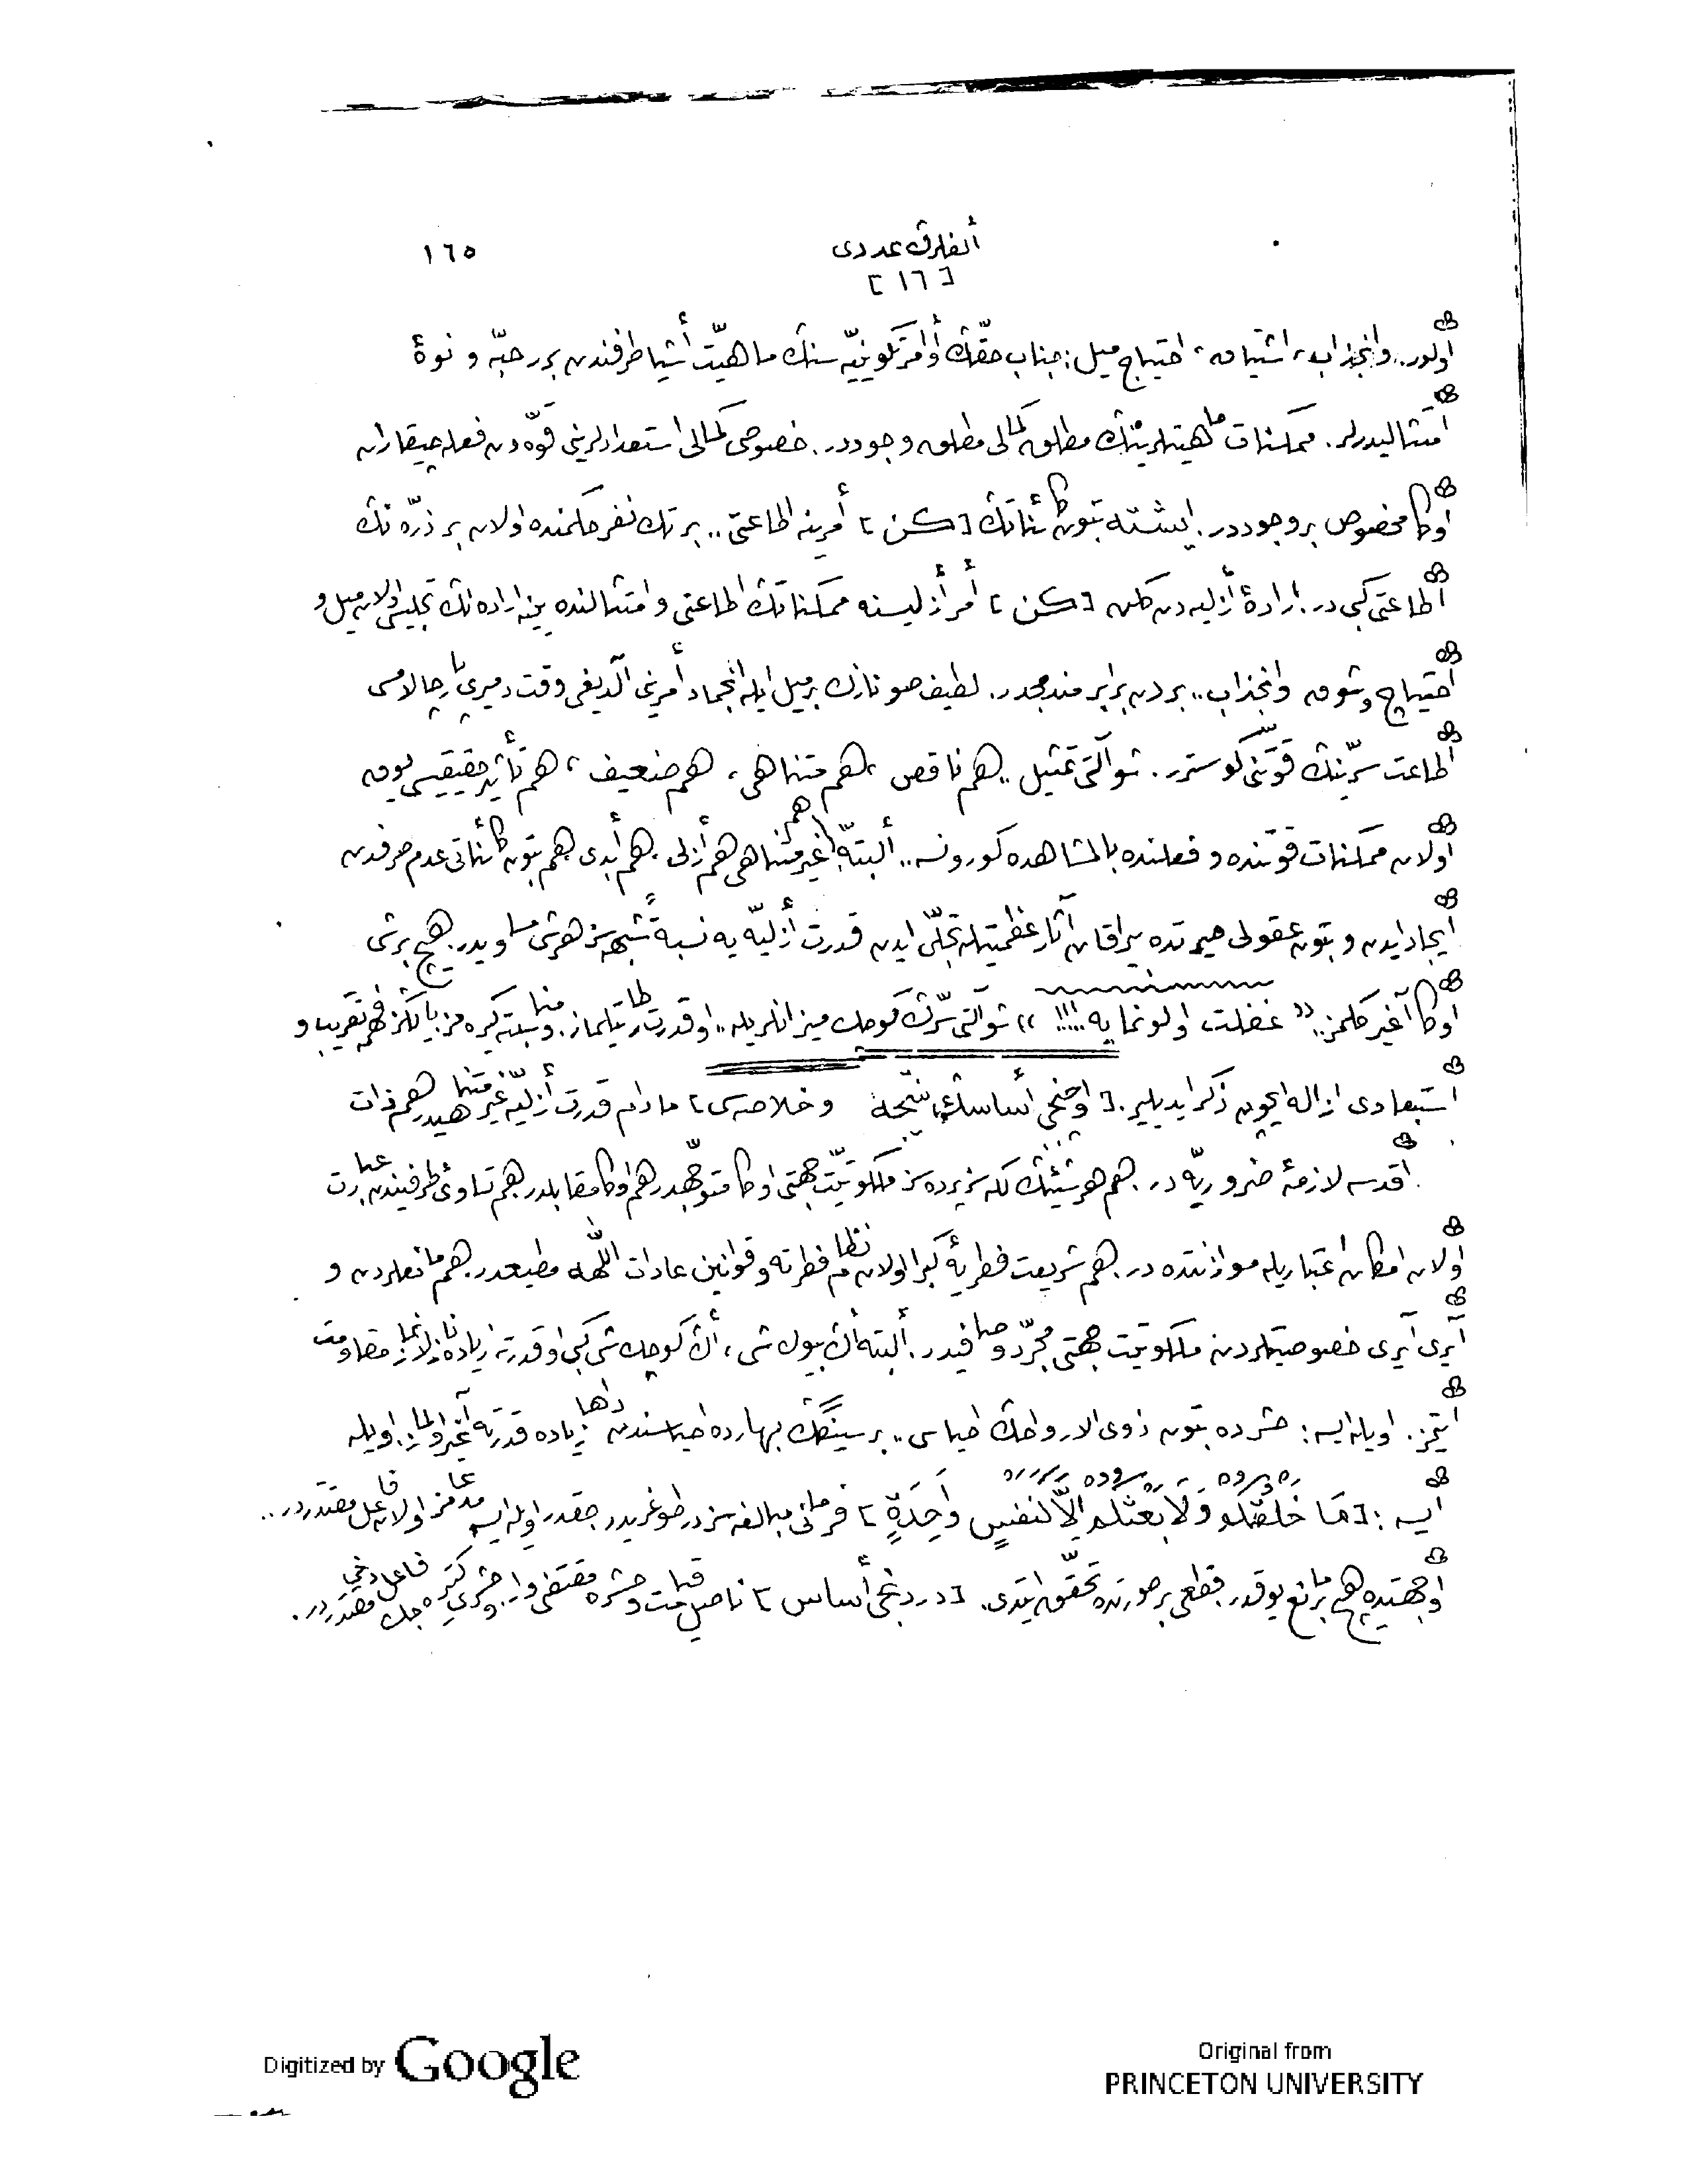 ألفلرڭ عددى
١٦٥
[ ١٦ ]
اولور. وانجذاب، اشتياق، احتياج ميل: جناب حقّڭ أوامر تكوينيّه سنڭ ماهيّت أشيا طرفندن برر حبّه و نوۀ
امتثاليدرلر. ممكنات ماهيتلرينڭ مطلق كمالى مطلق وجوددر. خصوصى كمالى استعدادلرينى قوّه دن فعله چيقاران
اوڭا مخصوص بر وجوددر. ايشته بتون كائناتڭ [ كن ] أمرينه اطاعتى.. بر تك نفر حكمنده اولان بر ذرّه نڭ
اطاعتى كبى در. ارادۀ أزليه دن كلن [ كن ] أمر أزليسنه ممكناتڭ اطاعتى و امتثالنده ينه اراده نڭ تجليسى اولان ميل و
احتياج و شوق وانجذاب.. بردن برابر مندمجدر. لطيف صو نازك بر ميل ايله انجماد أمرينى آلديغى وقت دميرى پارچالامسى
اطاعت سرّينڭ قوّتنى كوسترر. شو آلتى تمثيل.. هم ناقص، هم متناهى، هم ضعيف، هم تأثير حقيقيسى يوق
اولان ممكنات قوّتنده و فعلنده بالمشاهده كورونسه.. ألبتّه هم غير متناهى هم أزلى. هم أبدى. هم بتون كائناتى عدم صرفدن
ايجاد ايدن و بتون عقولى حيرتده بيراقان آثار عظمتيله تجلّى ايدن قدرت أزليّه يه نسبةً شبهه سز هرشى مساويدر. هيچ بر شى
اوڭا آغير كلمز.. «غفلت اولونمايه ....!!!!» شو آلتى سرّڭ كوچك ميزانلريله.. او قدرت طارتيلماز. و مناسبته كيره مز. يالڭز فهمه تقريب و
استبعادى ازاله ايچون ذكر ايديلير. [ اوچنجى أساسڭ نتيجه و خلاصه سى ] مادام قدرت أزليّه غير متناهيدر. هم ذات
اقدسه لازمۀ ضروريّه در. هم هر شيئڭ لكه سز پرده سز ملكوتيّت جهتى اوڭا متوجّهدر. هم اوڭا مقابلدر. هم تساوئ طرفيندن عبارت
اولان امكان اعتباريله موازنتده در. هم شريعت فطريۀ كبرا اولان نظام فطرته و قوانين عادات اللّهه مطيعدر. هم مانعلردن و
آيرى آيرى خصوصيتلردن ملكوتيت جهتى مجرّد و صافيدر. ألبته أڭ بيوك شى، أڭ كوچك شى كبى او قدرته زياده نازلانماز. مقاومت
ايتمز. اويله ايسه: حشرده بتون ذوى الارواحڭ احياسى.. بر سينگڭ بهارده احياسندن داها زياده قدرته آغير اولماز. اويله
ايسه: [ مَا خَلْقُكُمْ وَلَا بَعْثُكُمْ اِلَّا كَنَفْسٍ وَاحِدَةٍ ] فرمانى مبالغه سزدر. طوغريدر. حقدر. اويله ايسه مدعامز اولان فاعل مقتدردر..
او جهتده هيچ بر مانع يوقدر. قطعى بر صورتده تحقّق ايتدى. [ دردنجى أساس ] ناصل قيامت و حشره مقتضى وار. و حشرى كتيره جك فاعل دخى مقتدردر.
Digitized by Google
Original from
PRINCETON UNIVERSITY